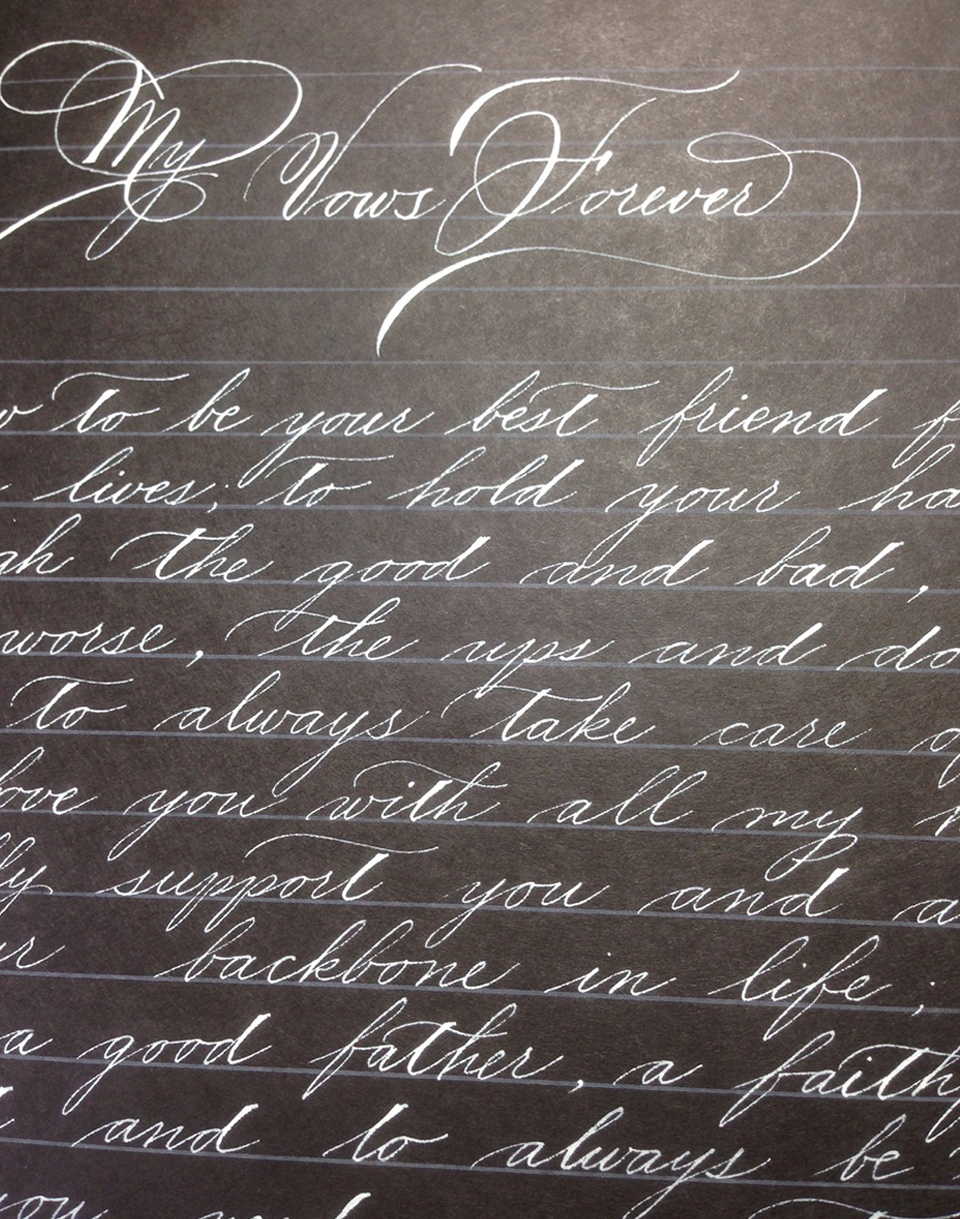 My Vows Forever
to be your best friend
lives; to hold your
the good and bad,
worse, the ups and
to always take care
you with all my
support you and
backbone in life;
a good father, a
and to always be
you